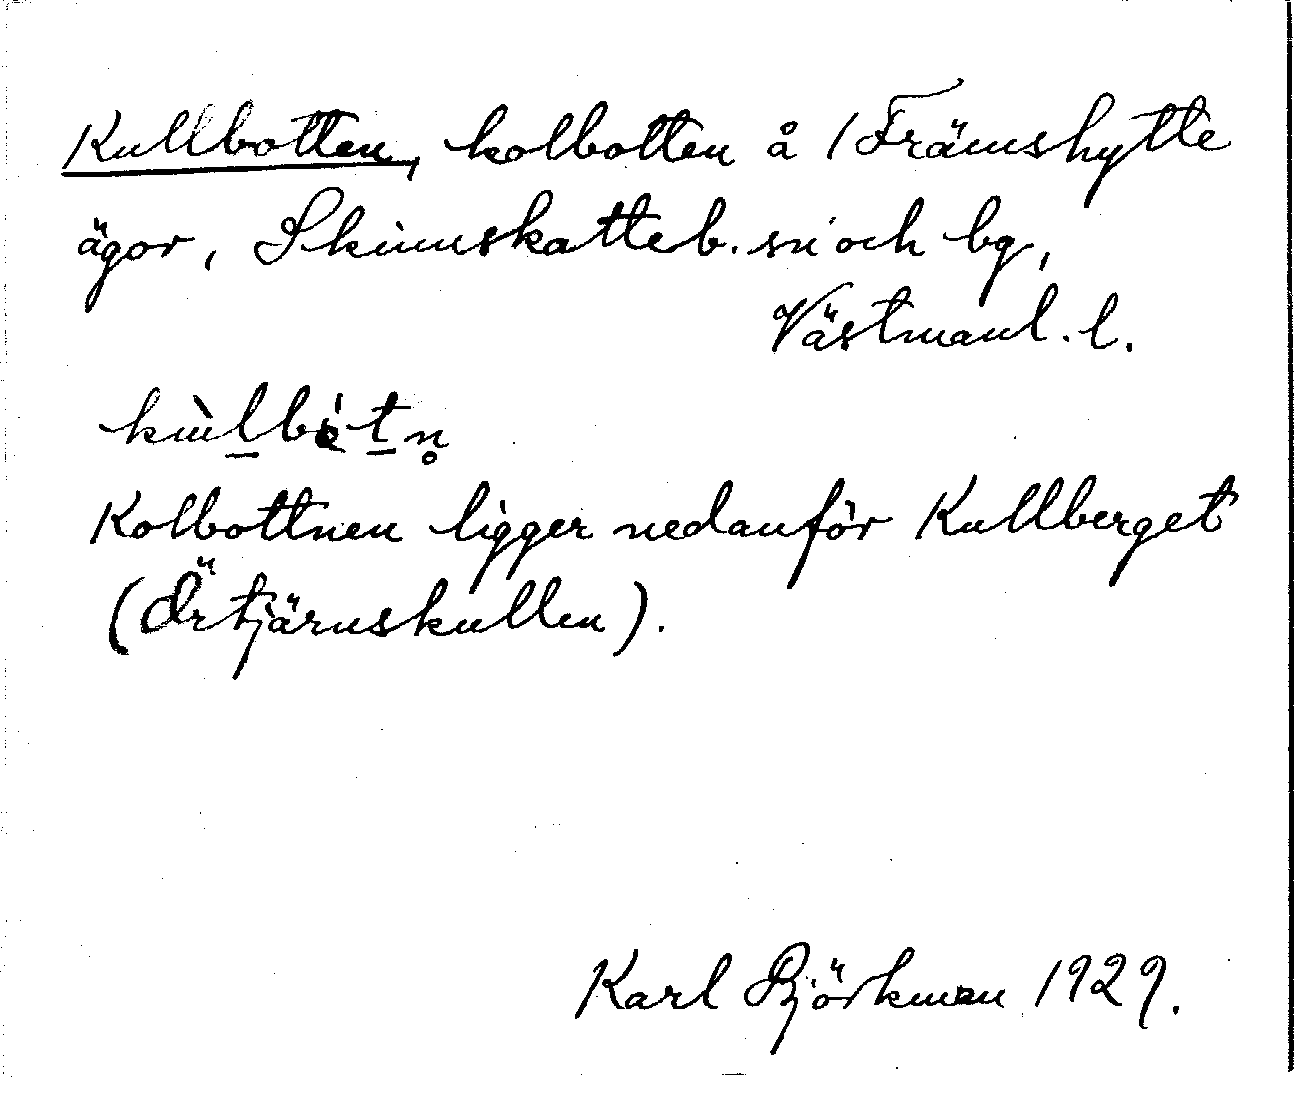 Kullbotten, kolbotten å / Främshytte
ägor, Skinnskatteb. sn och bg,
Västmanl. l.
Kolbottnen ligger nedanför Kullberget
(Örtjärnskullen).
Karl Björkman 1929.